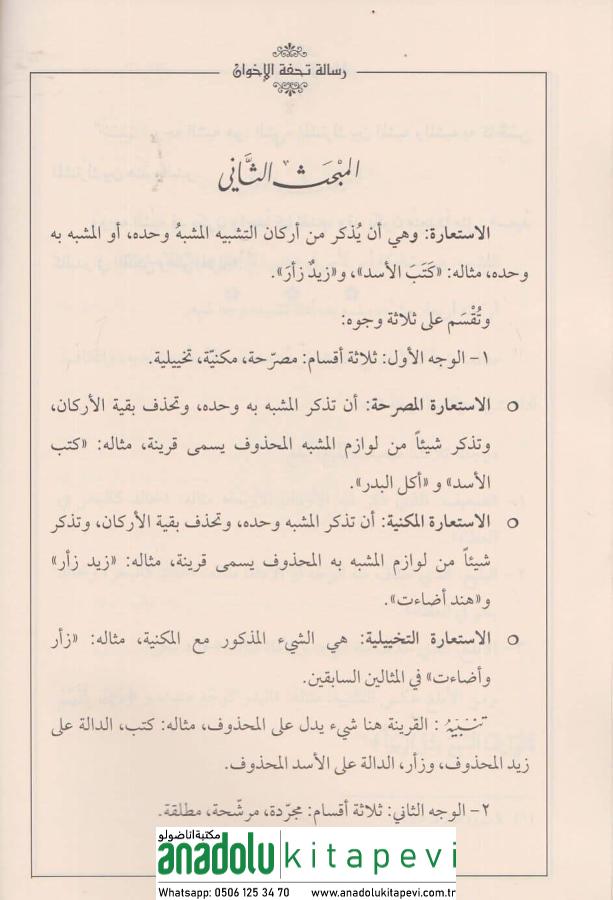 رسالة تحفة الإخوان
المبْحَث الثَّاني
الاستعارة: وهي أن يُذكر من أركان التشبيه المشبهُ وحده، أو المشبه به
وحده، مثاله: «كَتَبَ الأسد»، و«زيدٌ زأرَ».
وتُقْسَم على ثلاثة وجوه:
١- الوجه الأول: ثلاثة أقسام: مصرّحة، مكنيّة، تخييلية.
○ الاستعارة المصرحة: أن تذكر المشبه به وحده، وتحذف بقية الأركان،
وتذكر شيئاً من لوازم المشبه المحذوف يسمى قرينة، مثاله: «كتب
الأسد» و «أكل البدر».
○ الاستعارة المكنية: أن تذكر المشبه وحده، وتحذف بقية الأركان، وتذكر
شيئاً من لوازم المشبه به المحذوف يسمى قرينة، مثاله: «زيد زأر»
و«هند أضاءت».
○ الاستعارة التخييلية: هي الشيء المذكور مع المكنية، مثاله: «زأر
وأضاءت» في المثالين السابقين.
تنبيهُ : القرينة هنا شيء يدل على المحذوف، مثاله: كتب، الدالة على
زيد المحذوف، وزأر، الدالة على الأسد المحذوف.
٢- الوجه الثاني: ثلاثة أقسام: مجرّدة، مرشّحة، مطلقة.
مكتبة اناضولو
anadolu kitapevi
Whatsapp: 0506 125 34 70 www.anadolukitapevi.com.tr